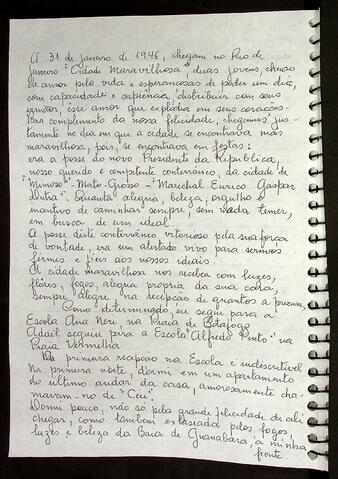 A 31 de Janeiro de 1946, chegam no Rio de
Janeiro "Cidade Maravilhosa", duas jovens, cheias
de amor pela vida e esperançosas de poder um dia,
com capacidade e sapiencia, distribuir com seus
irmãos, esse amor que explodia em seus corações.
Para complemento da nossa felicidade, chegamos jus-
tamente no dia em que a cidade se encontrava mais
maravilhosa, pois, se encontrava em festas:
era a posse do novo Presidente da Republica,
nosso querido e competente conterraneo, da cidade de
"Mimoso" - Mato-Grosso - "Marechal Eurico Gaspar
Dutra". Quanta alegria, beleza, orgulho e
incentivo de caminhar sempre, sem nada temer,
em busca de um ideal.
A posse deste conterraneo vitorioso pela sua força
de vontade, era um atestado vivo para sermos
firmes e fieis aos nossos ideais.
A cidade maravilhosa nos recebeu com luzes,
flôres, fogos, alegria propria da sua côra,
sempre alegre na recepção de quantos a procura,
Como determinado, eu segui para a
Escola Ana Neri na Praia de Botafogo
Adail seguiu para a Escola "Alfredo Pinto" na
Praia Vermelha
A primeira recepção na Escola é indescritível
Na primeira noite, dormi em um apartamento
no ultimo andar da casa, amorosamente cha-
maram-no de "Céu".
Dormi pouco, não só pela grande felicidade de ali
chegar, como tambem extasiada pelos fogos,
luzes e beleza da Baia de Guanabara, a minha
frente.